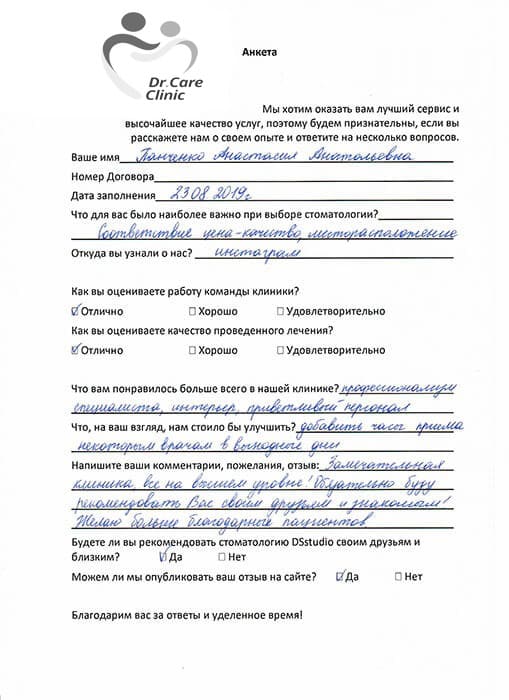 Dr.Care
Clinic
Анкета
Мы хотим оказать вам лучший сервис и
высочайшее качество услуг, поэтому будем признательны, если вы
расскажете нам о своем опыте и ответите на несколько вопросов.
Ваше имя Панченко Анастасия Анатольевна
Номер Договора
Дата заполнения 23.08.2019г
Что для вас было наиболее важно при выборе стоматологии?
Соответствие цена-качество, месторасположение
Откуда вы узнали о нас? инстаграм
Как вы оцениваете работу команды клиники?
☑Отлично ☐Хорошо ☐Удовлетворительно
Как вы оцениваете качество проведенного лечения?
☑Отлично ☐Хорошо ☐Удовлетворительно
Что вам понравилось больше всего в нашей клинике? профессионализм
специалиста, интерьер, приветливый персонал
Что, на ваш взгляд, нам стоило бы улучшить? добавить часы приема
некоторым врачам в выходные дни
Напишите ваши комментарии, пожелания, отзыв: Замечательная
клиника, все на высшем уровне! Обязательно буду
рекомендовать Вас своим друзьям и знакомым!
Желаю больше благодарных пациентов
Будете ли вы рекомендовать стоматологию DSstudio своим друзьям и
близким? ☑Да ☐Нет
Можем ли мы опубликовать ваш отзыв на сайте? ☑Да ☐Нет
Благодарим вас за ответы и уделенное время!